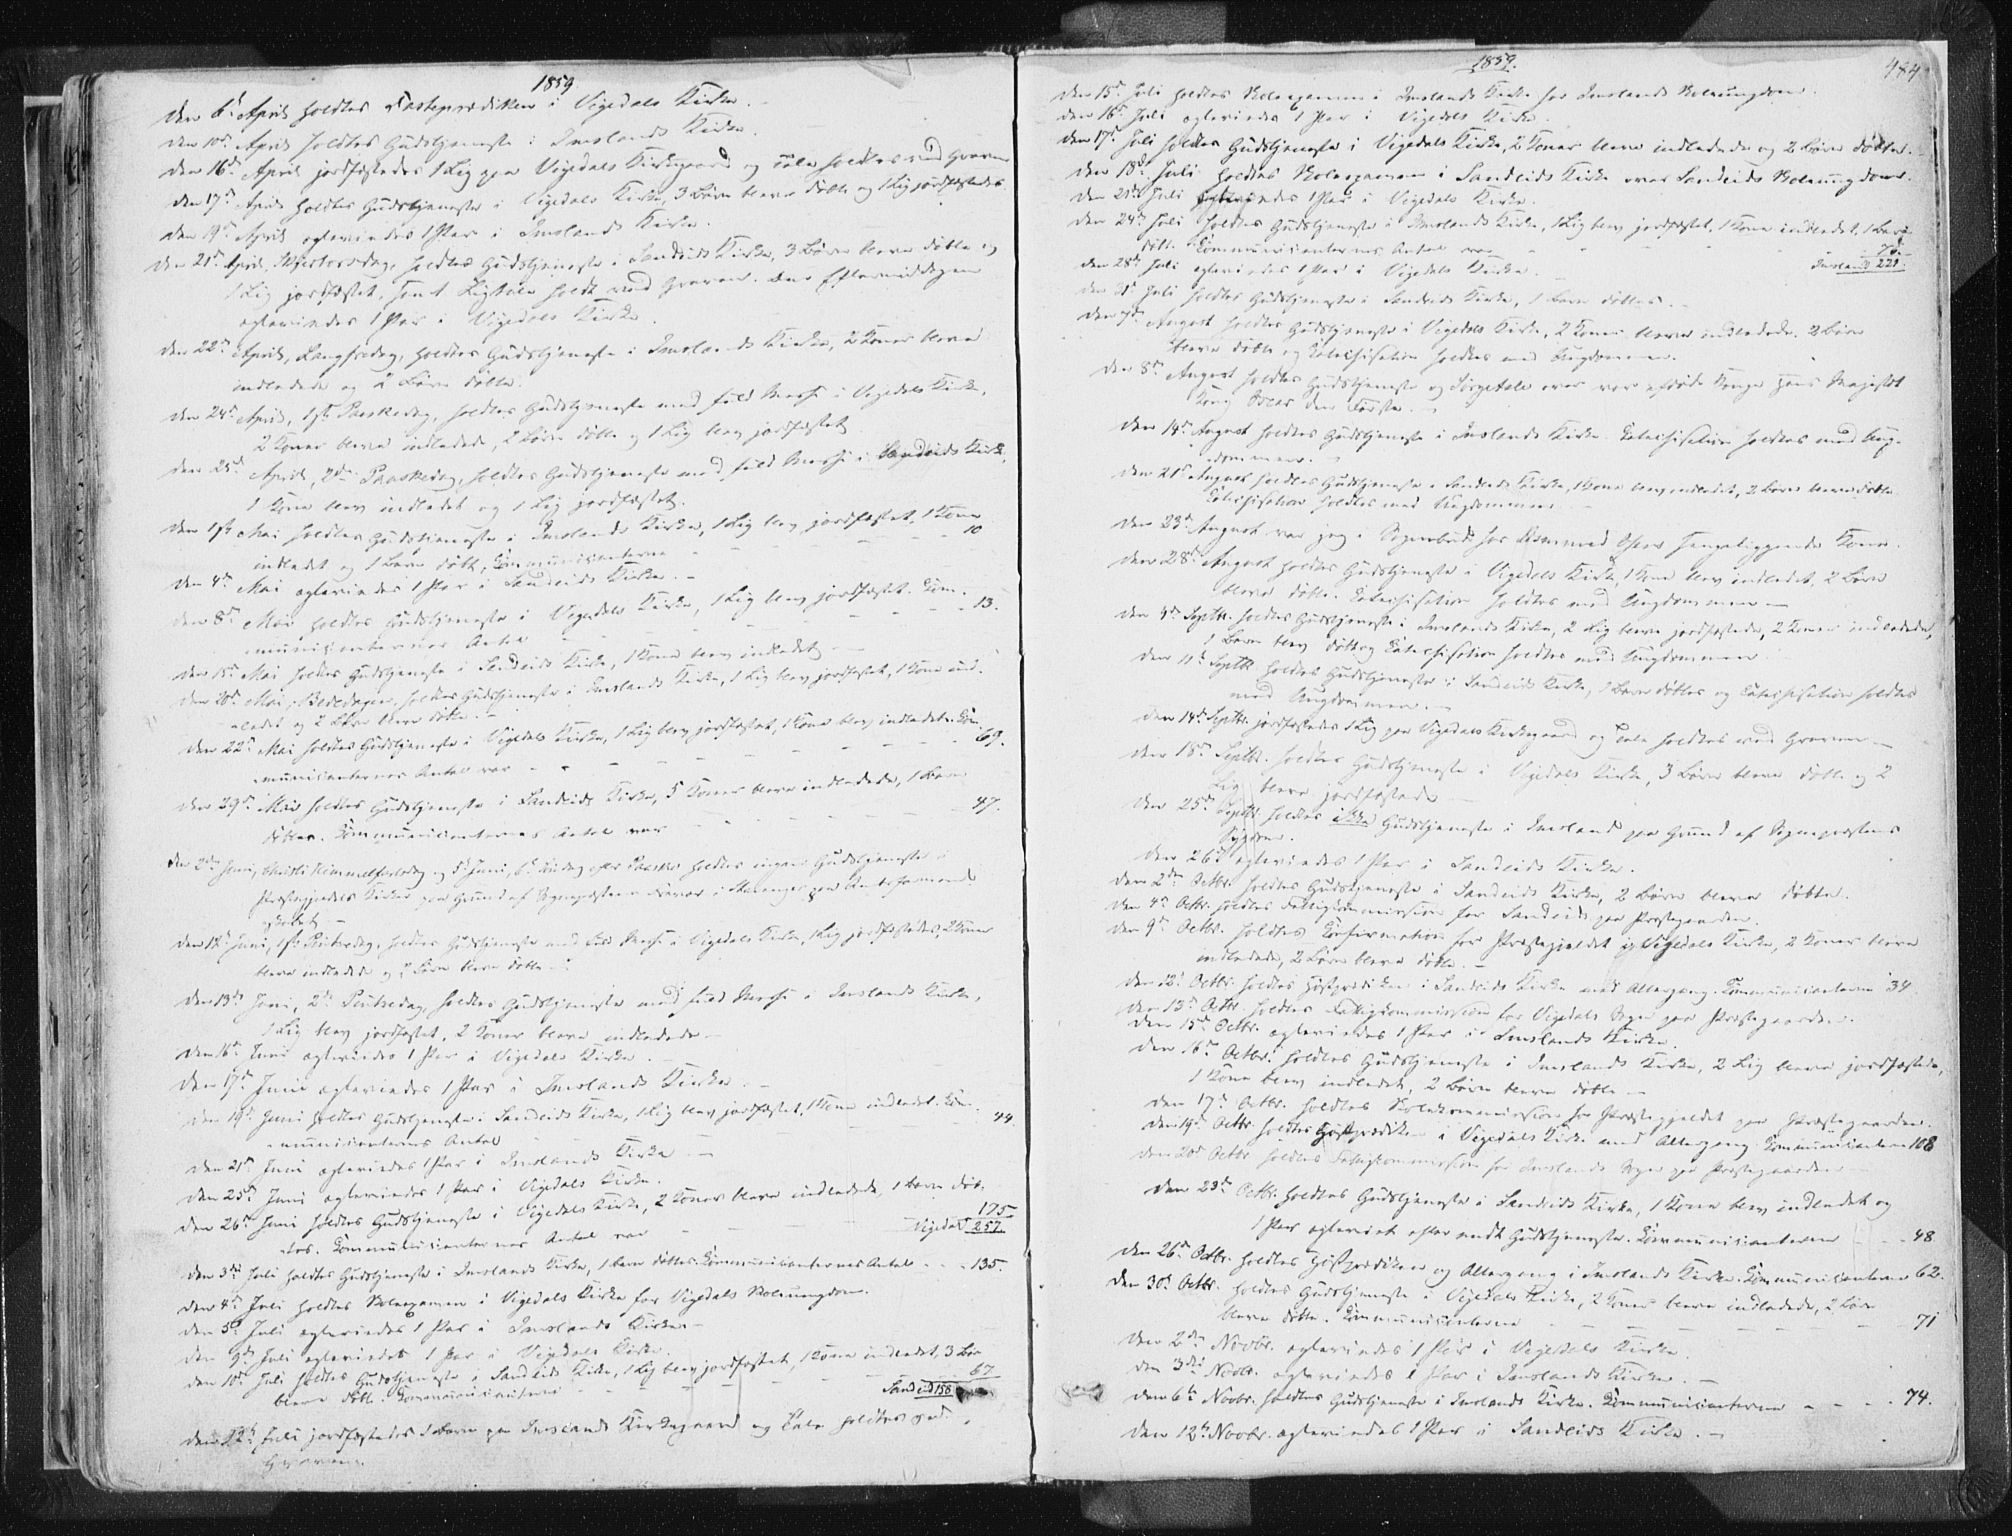 1859
den 6t April holdtes Fasteprædiken i Vigedals Kirke. -
den 10d April holdtes Gudstjeneste i Imslands Kirke.
den 16d April jordfæstedes 1 Lig paa Vigedals Kirkegaard og Tale holdtes ved Graven
den 17d April holdtes Gudstjeneste i Vigedals Kirke, 3 Børn bleve døbte og 1 Lig jordfæstedes
den 19d April ægteviedes 1 Par i Imslands Kirke.
den 21d April, Skjertorsdag, holdtes Gudstjeneste i Sandeids Kirke, 3 Børn bleve døbte og
1 Lig jordfæstet, samt Ligtale holdt ved Graven. Den Eftermiddagen
ægteviedes 1 Par i Vigedals Kirke.
den 22d April, Langfredag, holdtes Gudstjeneste i Imslands Kirke, 2 Koner bleve
indledede og 2 Børn døbte.
den 24d April, 1ste Paaskedag, holdtes Gudstjeneste med fuld Messe i Vigedals Kirke,
2 Koner bleve indledede, 2 Børn døbte og 1 Lig blev jordfæstet
den 25d April, 2den Paaskedag, holdtes Gudstjeneste med fuld Messe i Sandeids Kirke,
1 Kone blev indledet og 1 Lig jordfæstet.
den 1ste Mai holdtes Gudstjeneste i Imslands Kirke, 1 Lig blev jordfæstet, 1 Kone
indledet og 1 Barn døbt, Communicanterne - - - - - 10
den 4de Mai ægteviedes 1 Par i Sandeids Kirke. -
den 8d Mai holdtes Gudstjeneste i Vigedals Kirke, 1 Lig blev jordfæstet. Com-
municanternes Antal - - - - - - 13.
den 15d Mai holdtes Gudstjeneste i Sandeids Kirke, 1 Kone blev indledet -
den 20d Mai, Bededagen, holdtes Gudstjeneste i Imslands Kirke, 1 Lig blev jordfæstet, 1 Kone ind-
ledet og 2 Børn bleve døbte. -
den 22d Mai holdtes Gudstjeneste i Vigedals Kirke, 1 Lig blev jordfæstet, 1 Kone blev indledet. Com-
municanternes Antal var - - - - - - 69.
den 29d Mai holdtes Gudstjeneste i Sandeids Kirke, 5 Koner bleve indledede, 1 Barn
døbtes. Communicanternes Antal var - - - - - 47.
den 2den Juni, Christi Himmelfartsdag og 5t Juni, 6t Søndag efter Paaske holdtes ingen Gudstjeneste i
Præstegjeldets Kirker paa Grund af Sognepræstens Nærvær i Stavanger paa Amtsformand-
skabet -
den 12d Juni, 1ste Pintsedag, holdtes Gudstjeneste med fuld Messe i Vigedals Kirke, 1 Lig jordfæstedes, 2 Koner
bleve indledede og 2 Børn bleve døbte -
den 13d Juni, 2d Pintsedag, holdtes Gudstjeneste med fuld Messe i Imslands Kirke,
1 Lig blev jordfæstet, 2 Koner bleve indledede -
den 16d Juni ægteviedes 1 Par i Vigedals Kirke. -
den 17d Juni ægteviedes 1 Par i Imslands Kirke. -
den 19d Juni holdtes Gudstjeneste i Sandeids Kirke, 1 Lig blev jordfæstet, 1 Kone indledet. Com-
municanternes Antal - - - - - 44.
den 21d Juni ægteviedes 1 Par i Imslands Kirke -
den 25d Juni ægteviedes 1 Par i Vigedals Kirke.
den 26d Juni holdtes Gudstjeneste i Vigedals Kirke, 2 Koner bleve indledede, 1 Barn døb-
tes. Communicanternes Antal var - - - 175
Vigedal 257.
den 3d Juli holdtes Gudstjeneste i Imslands Kirke, 1 Barn døbtes. Communicanternes Antal - - - 135.
den 4d Juli holdtes Skoleexamen i Vigedals Kirke for Vigedals Skoleungdom.
den 5d Juli ægteviedes 1 Par i Imslands Kirke. -
den 9d Juli ægteviedes 1 Par i Vigedals Kirke.
den 10d Juli holdtes Gudstjeneste i Sandeids Kirke, 1 Lig blev jordfæstet, 1 Kone indledet, 3 Børn
bleve døbte. Communicanterne - - - - 67
Sandeid 158
den 12d Juli jordfæstedes 1 Barn paa Imslands Kirkegaard og Tale holdtes ved
Graven.
1859.
484
den 15d Juli holdtes Skoleexamen i Imslands Kirke for Imslands Skoleungdom.
den 16d Juli ægteviedes 1 Par i Vigedals Kirke.
den 17d Juli holdtes Gudstjeneste i Vigedals Kirke, 2 Koner bleve indledede og 2 Børn døbte.
den 18d Juli holdtes Skoleexamen i Sandeids Kirke over Sandeids Skoleungdom.
den 21d Juli ægteviedes 1 Par i Vigedals Kirke.
den 24d Juli holdtes Gudstjeneste i Imslands Kirke, 1 Lig blev jordfæstet, 1 Kone indledet, 1 Barn
døbt. Communicanternes Antal var - - - - 76.
Imsland 221.
den 28d Juli ægteviedes 1 Par i Vigedals Kirke.
den 31d Juli holdtes Gudstjeneste i Sandeids Kirke, 1 Barn døbtes. -
den 7d August holdtes Gudstjeneste i Vigedals Kirke, 2 Koner bleve indledede. 2 Børn
bleve døbte og Catechisation holdtes med Ungdommen.
den 8d August holdtes Gudstjeneste og Sørgetale over vor afdøde Konge Hans Majestæt
Kong Oscar den Første. -
den 14d August holdtes Gudstjeneste i Imslands Kirke. Catechisation holdtes med Ung-
dommen. -
den 21d August holdtes Gudstjeneste i Sandeids Kirke, 1 Kone blev indledet, 2 Børn bleve døbte
Catechisation holdtes med Ungdommen -
den 23d August var jeg i Sognebud for Osmund Oksens sengeliggende Kone.
den 28d August holdtes Gudstjeneste i Vigedals Kirke, 1 Kone blev indledet, 2 Børn
bleve døbte. Catechisation holdtes med Ungdommen -
den 4d Septbr. holdtes Gudstjeneste i Imslands Kirke, 2 Lig bleve jordfæstede, 2 Koner indledede,
1 Barn blev døbt og Catechisation holdtes med Ungdommen
den 11d Septbr. holdtes Gudstjeneste i Sandeids Kirke, 1 Barn døbtes og Catechisation holdtes
med Ungdommen. -
den 14d Septbr. jordfæstedes 1 Lig paa Vigedals Kirkegaard og Tale holdtes ved Graven -
den 18d Septbr. holdtes Gudstjeneste i Vigedals Kirke, 3 Børn bleve døbte og 2
Lig bleve jordfæstede -
den 25d Septbr. holdtes ikke Gudstjeneste i Imsland paa Grund af Sognepræstens
Sygdom.
den 26d ægteviedes 1 Par i Sandeids Kirke.
den 2den Octbr. holdtes Gudstjeneste i Sandeids Kirke, 2 Børn bleve døbte.
den 4d Octbr. holdtes Fattigcommission for Sandeid paa Præstegaarden.
den 9d Octbr. holdtes Confirmation for Præstegjeldet i Vigedals Kirke, 2 Koner bleve
indledede, 2 Børn bleve døbte. -
den 12d Octbr. holdtes Høstprædiken i Sandeids Kirke med Altergang. Communicanterne 34
den 13d Octbr. holdtes Fattigcommission for Vigedals Sogn paa Præstegaarden.
den 15d Octbr. ægteviedes 1 Par i Imslands Kirke.
den 16d Octbr. holdtes Gudstjeneste i Imslands Kirke, 2 Lig bleve jordfæstede,
1 Kone blev indledet, 2 Børn bleve døbte -
den 17d Octbr. holdtes Skolekommission for Præstegjeldet paa Præstegaarden.
den 19d Octbr. holdtes Høstprædiken i Vigedals Kirke med Altergang Communicanterne 108
den 20d Octbr. holdtes Fattigkommission for Imslands Sogn paa Præstegaarden -
den 23d Octbr. holdtes Gudstjeneste i Sandeids Kirke, 1 Kone blev indledet og
1 Par ægteviet efter endt Gudstjeneste. Communicanterne - - - 48
den 26d Octbr. holdtes Høstprædiken og Altergang i Imslands Kirke. Communicanterne 62.
den 30d Octbr. holdtes Gudstjeneste i Vigedals Kirke, 2 Koner bleve indledede, 2 Børn
bleve døbte. Communicanterne - - - - - 71
den 2den Novbr. ægteviedes 1 Par i Vigedals Kirke.
den 3die Novbr. ægteviedes 1 Par i Imslands Kirke. -
den 6te Novbr. holdtes Gudstjeneste i Imslands Kirke. Communicanterne - - - - 74.
den 12te Novbr. ægteviedes 1 Par i Sandeids Kirke. -